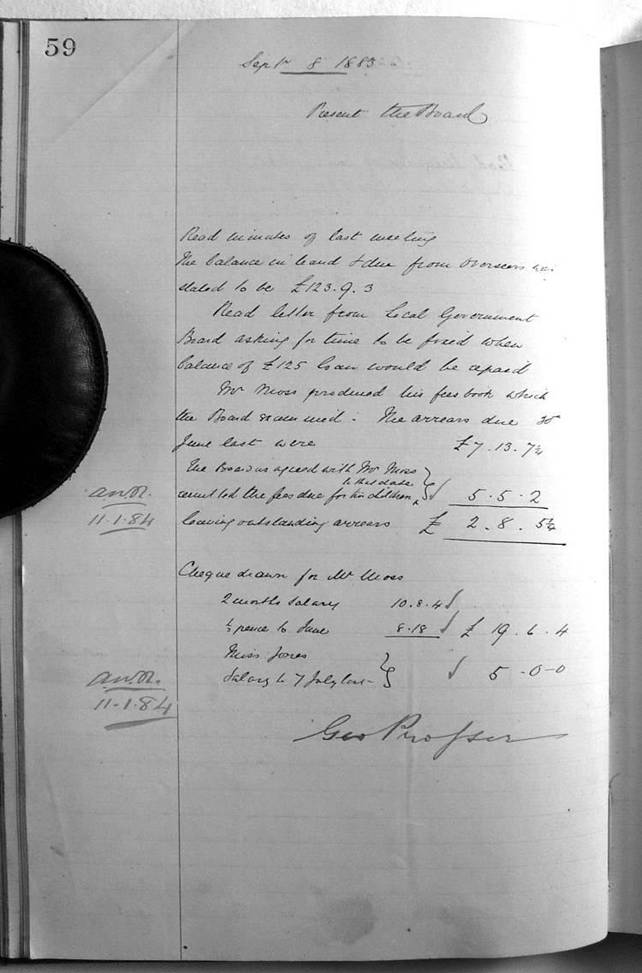 59
Sepr 8 1883
Present the Board
Read minutes of last meeting
The balance in hand & due from Overseers was
stated to be £123.9.3
Read letter from Local Government
Board asking for time to be fixed when
balance of £125 loan would be repaid
Mr Moss produced his fees book which
the Board examined. The arrears due 30
June last were £7.13.7¾
The Board as agreed with Mr Moss
to this date
remitted the fees due for his children 5.5.2
leaving outstanding arrears £ 2.8.5¼
11.1.84
Cheque drawn for Mr Moss
2 months salary 10.8.4
½ pence to June 8.18 £ 19.6.4
Miss Jones
Salary to 7 July last 5.0.0
11.1.84
Geo Prosser